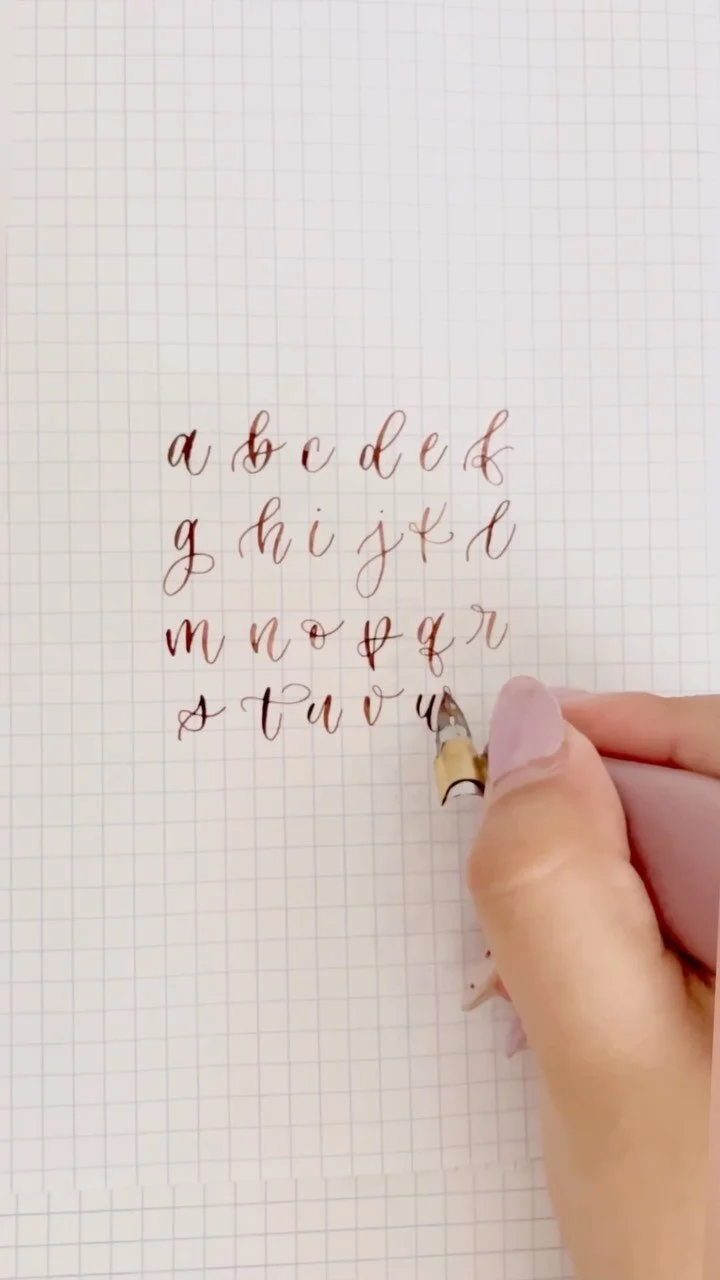 a b c d e f
g h i j k l
m n o p q r
s t u v u